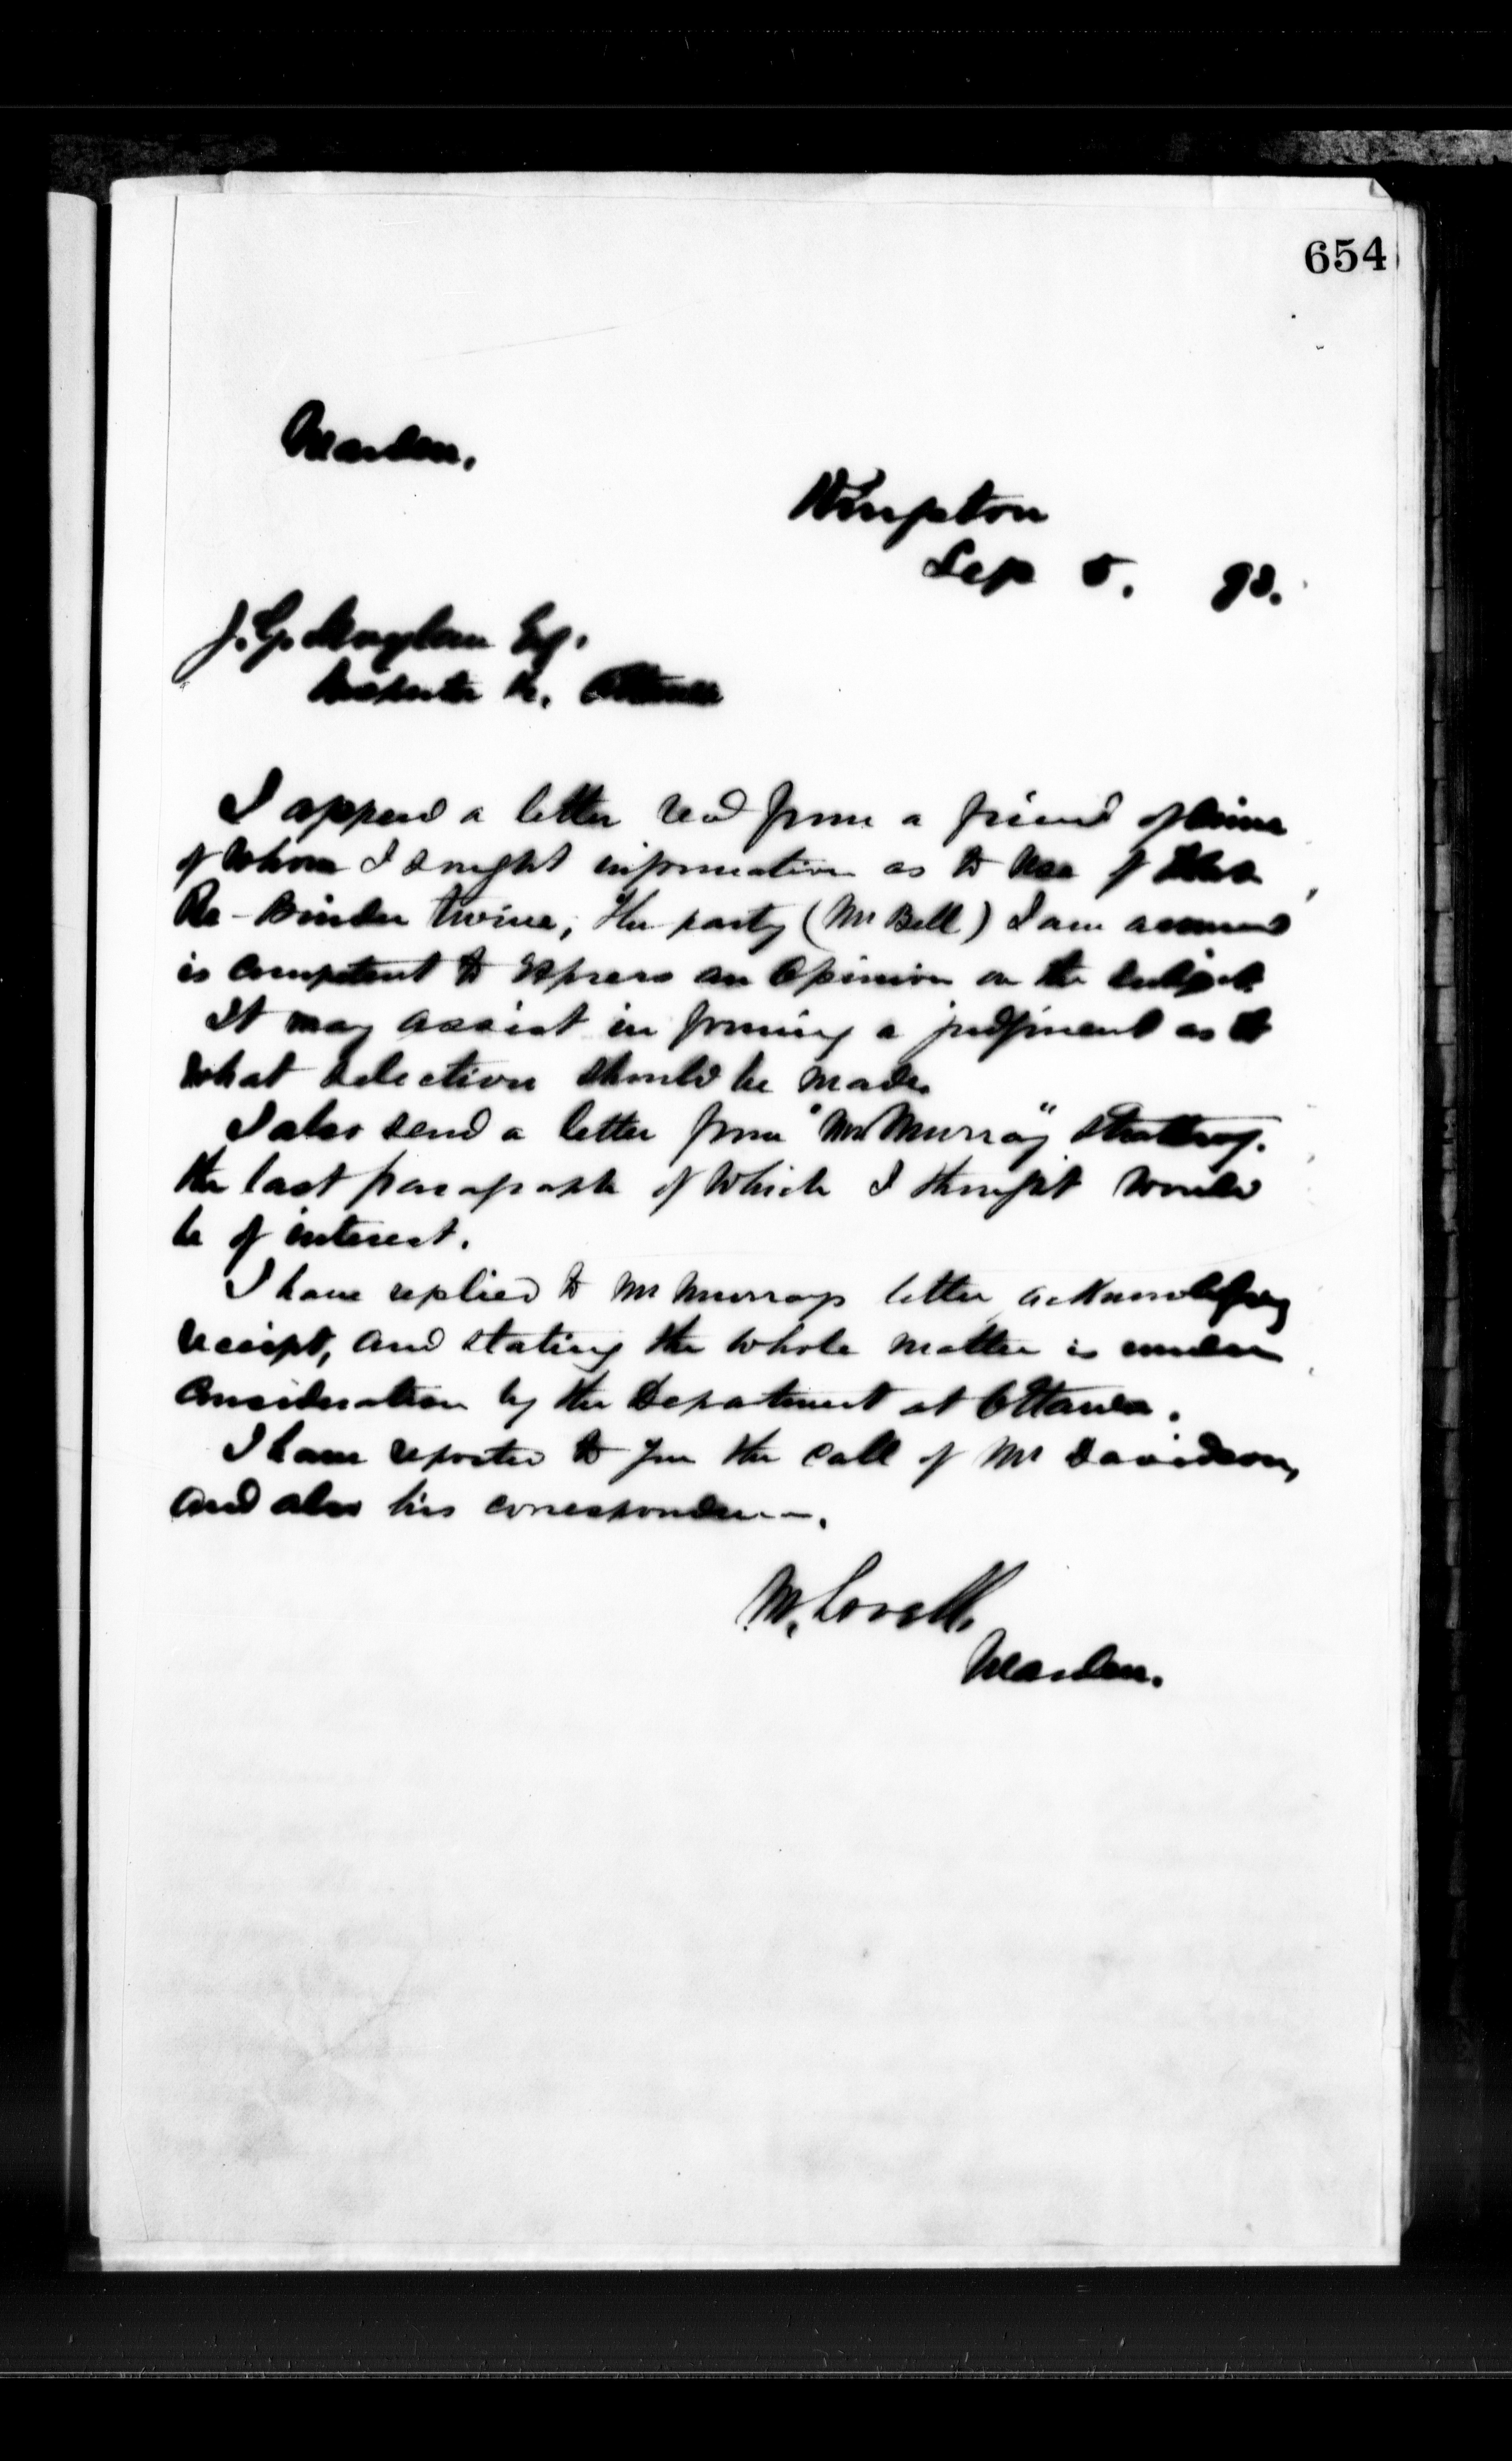 654
Warden.
Kingston
Sep 5. 93.
J. G. Moylan Esq.
Inspector &c. Ottawa
I append a letter recd from a friend of mine
of whom I sought information as to use of
Re- Binder twine, the party (Mr Bell) I am assured
is competent to express an opinion on the subject.
It may assist in forming a judgment as to
what selection should be made.
I also send a letter from "Mr Murray" Strathroy.
the last paragraph of which I thought would
be of interest.
I have replied to Mr Murrays letter acknowledging
receipt, and stating the whole matter is under
consideration by the Department at Ottawa.
I have reported to you the call of Mr Davidson,
and also his correspondence.
M. Lavell.
Warden.